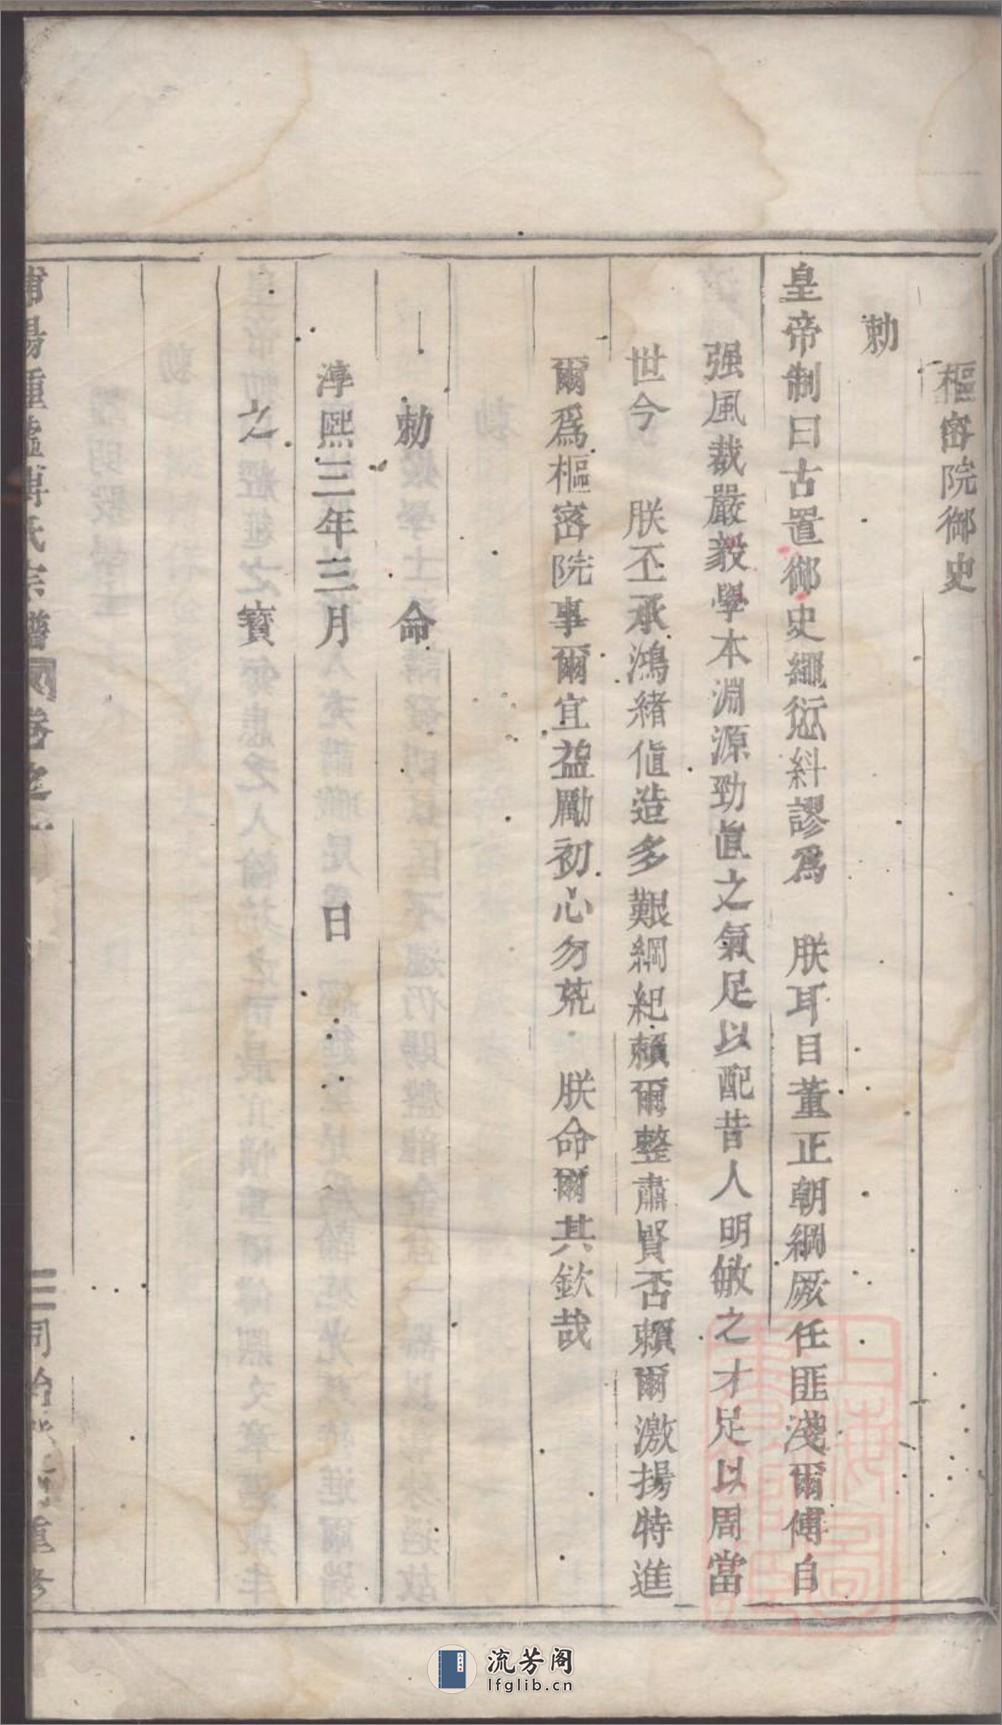 樞密院御史
勅
皇帝制曰古置御史繩愆糾謬爲 朕耳目董正朝綱厥任匪淺爾傅自
强風裁嚴毅學本淵源勁直之氣足以配昔人明敏之才足以周當
世今 朕丕承鴻緒值造多艱綱紀賴爾整肅賢否賴爾激揚特進
爾爲樞密院事爾宜益勵初心勿荒 朕命爾其欽哉
勅 命
淳熙三年三月 日
之 寶
浦陽重盧傅氏宗譜 卷之一 三 同治 重修
流芳阁
lfglib.cn